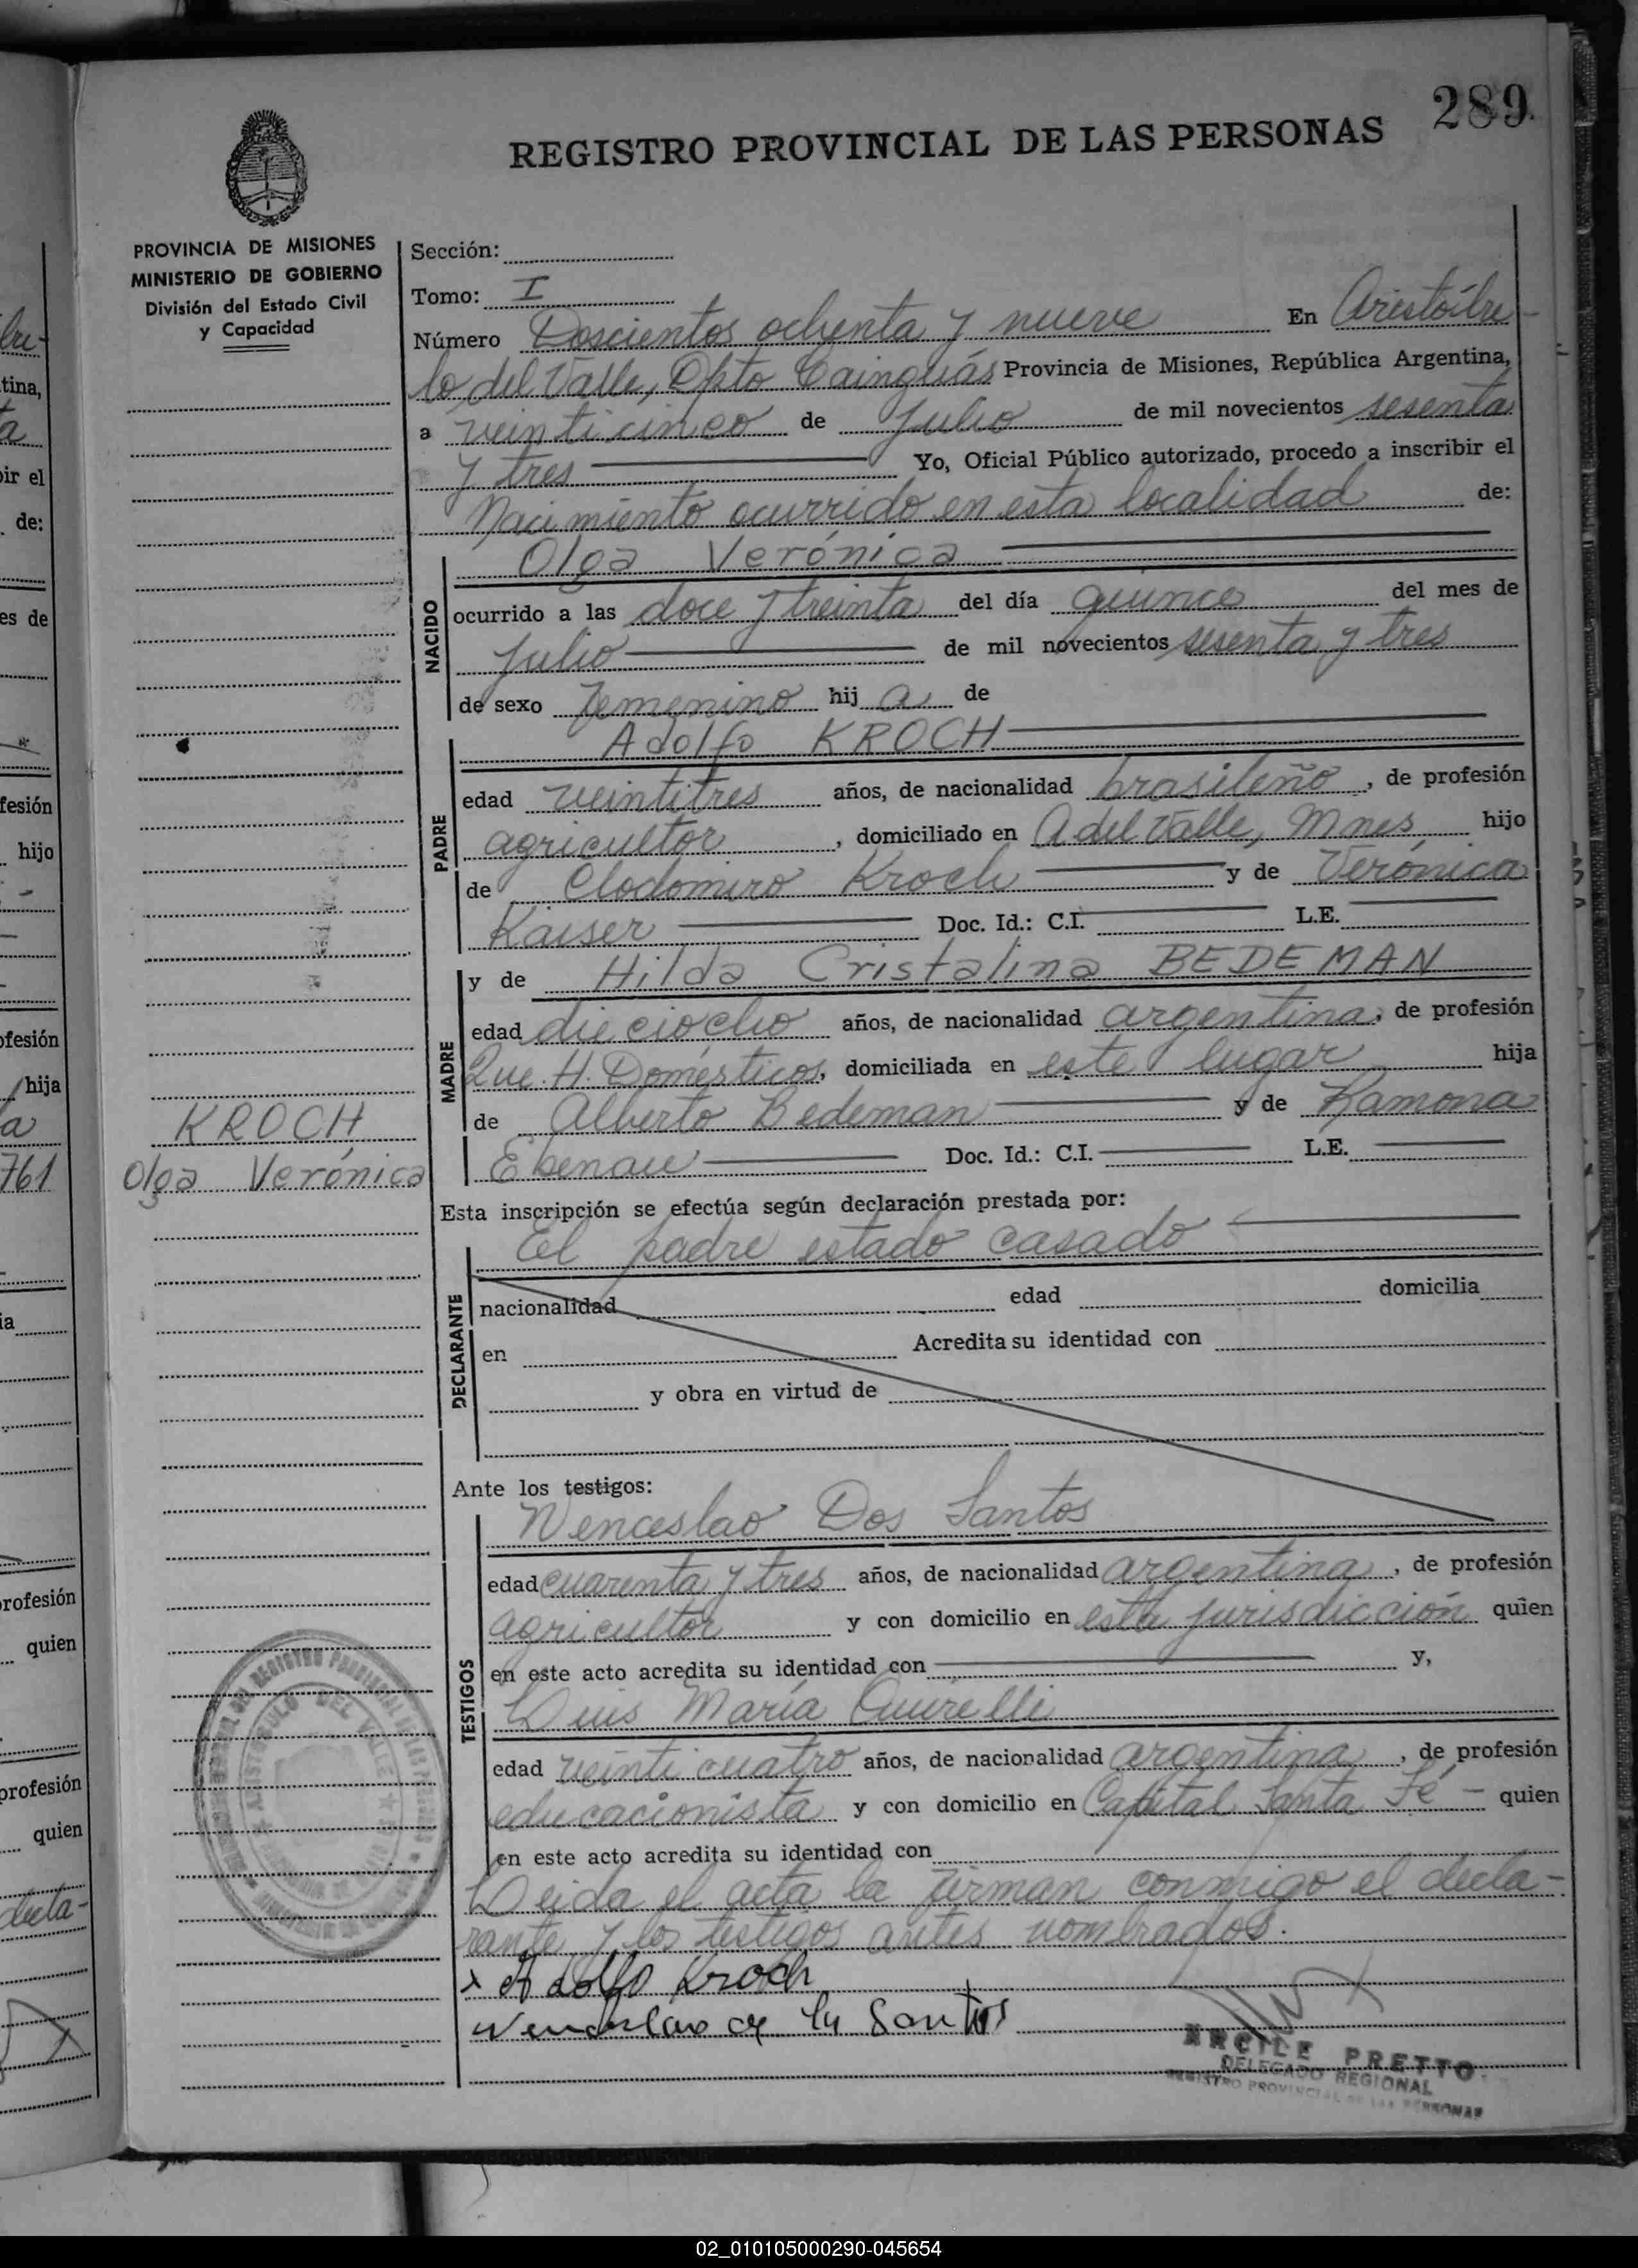 289
REGISTRO PROVINCIAL DE LAS PERSONAS
PROVINCIA DE MISIONES
MINISTERIO DE GOBIERNO
División del Estado Civil
y Capacidad
Sección:
Tomo: I
Número Doscientos ochenta y nueve En Aristóbu-
lo del Valle, Dpto Cainguás Provincia de Misiones, República Argentina,
a veinticinco de Julio de mil novecientos sesenta
y tres Yo, Oficial Público autorizado, procedo a inscribir el
Nacimiento ocurrido en esta localidad de:
NACIDO
Olga Verónica
ocurrido a las doce y treinta del día quince del mes de
Julio de mil novecientos sesenta y tres
de sexo femenino hij a de
PADRE
Adolfo KROCH
edad veintitres años, de nacionalidad brasileño, de profesión
agricultor, domiciliado en A del Valle, Mnes hijo
de Clodomiro Kroch y de Verónica
Kaiser Doc. Id.: C.I. L.E.
MADRE
y de Hilda Cristalina BEDEMAN
edad dieciocho años, de nacionalidad argentina, de profesión
Que. H. Domésticos, domiciliada en este lugar hija
de Alberto Bedeman y de Ramona
Ebenau Doc. Id.: C.I. L.E.
KROCH
Olga Verónica
Esta inscripción se efectúa según declaración prestada por:
El padre estado casado
DECLARANTE
nacionalidad edad domicilia
en Acredita su identidad con
y obra en virtud de
Ante los testigos:
TESTIGOS
Wenceslao Dos Santos
edad cuarenta y tres años, de nacionalidad argentina, de profesión
agricultor y con domicilio en esta jurisdicción quien
en este acto acredita su identidad con y,
Luis María
edad veinticuatro años, de nacionalidad argentina, de profesión
educacionista y con domicilio en Capital Santa Fé - quien
en este acto acredita su identidad con
Leida el acta la firman conmigo el decla-
rante y los testigos antes nombrados.
x Adolfo Kroch
Santos
ARCILE PRETTO
DELEGADO REGIONAL
REGISTRO PROVINCIAL DE LAS PERSONAS
02_010105000290-045654